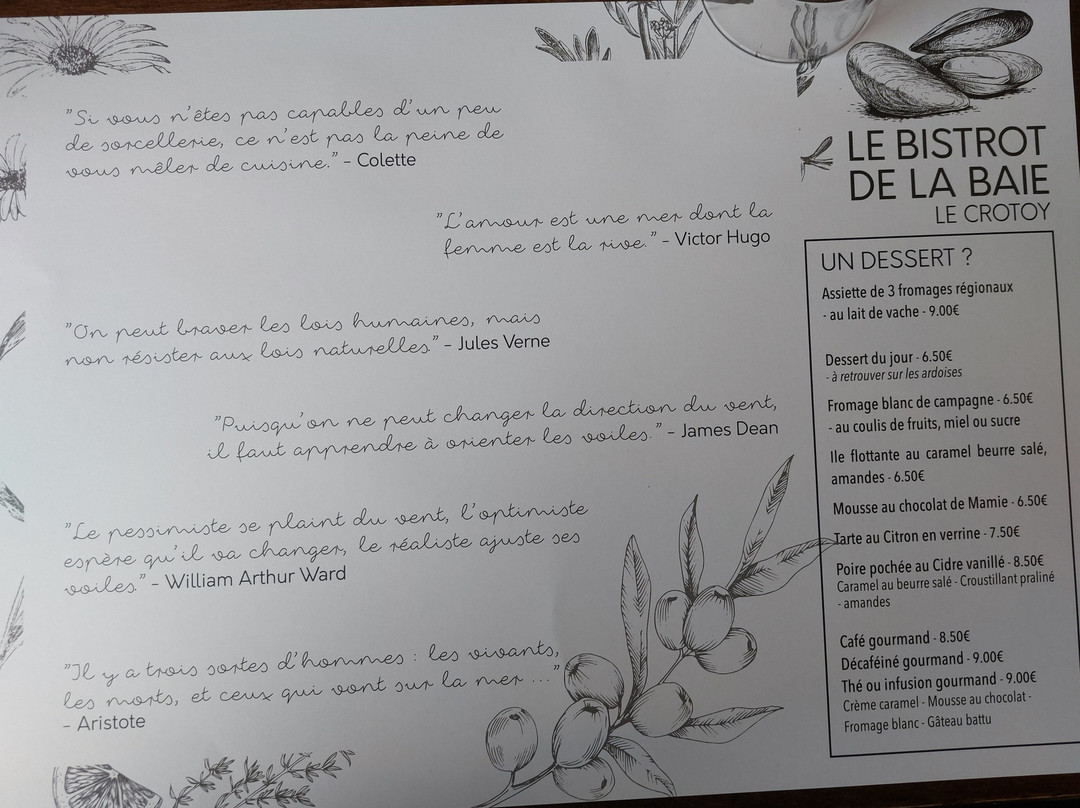 "Si vous n'êtes pas capables d'un peu
de sorcellerie, ce n'est pas la peine de
vous mêler de cuisine." - Colette
"L'amour est une mer dont la
femme est la rive." - Victor Hugo
"On peut braver les lois humaines, mais
non résister aux lois naturelles." - Jules Verne
"Puisqu'on ne peut changer la direction du vent,
il faut apprendre à orienter les voiles." - James Dean
"Le pessimiste se plaint du vent, l'optimiste
espère qu'il va changer, le réaliste ajuste ses
voiles." - William Arthur Ward
"Il y a trois sortes d'hommes : les vivants,
les morts, et ceux qui vont sur la mer ... "
- Aristote
LE BISTROT
DE LA BAIE
LE CROTOY
UN DESSERT ?
Assiette de 3 fromages régionaux
- au lait de vache - 9.00€
Dessert du jour - 6.50€
- à retrouver sur les ardoises
Fromage blanc de campagne - 6.50€
- au coulis de fruits, miel ou sucre
Ile flottante au caramel beurre salé,
amandes - 6.50€
Mousse au chocolat de Mamie - 6.50€
Tarte au Citron en verrine - 7.50€
Poire pochée au Cidre vanillé - 8.50€
Caramel au beurre salé - Croustillant praliné
- amandes
Café gourmand - 8.50€
Décaféiné gourmand - 9.00€
Thé ou infusion gourmand - 9.00€
Crème caramel - Mousse au chocolat -
Fromage blanc - Gâteau battu